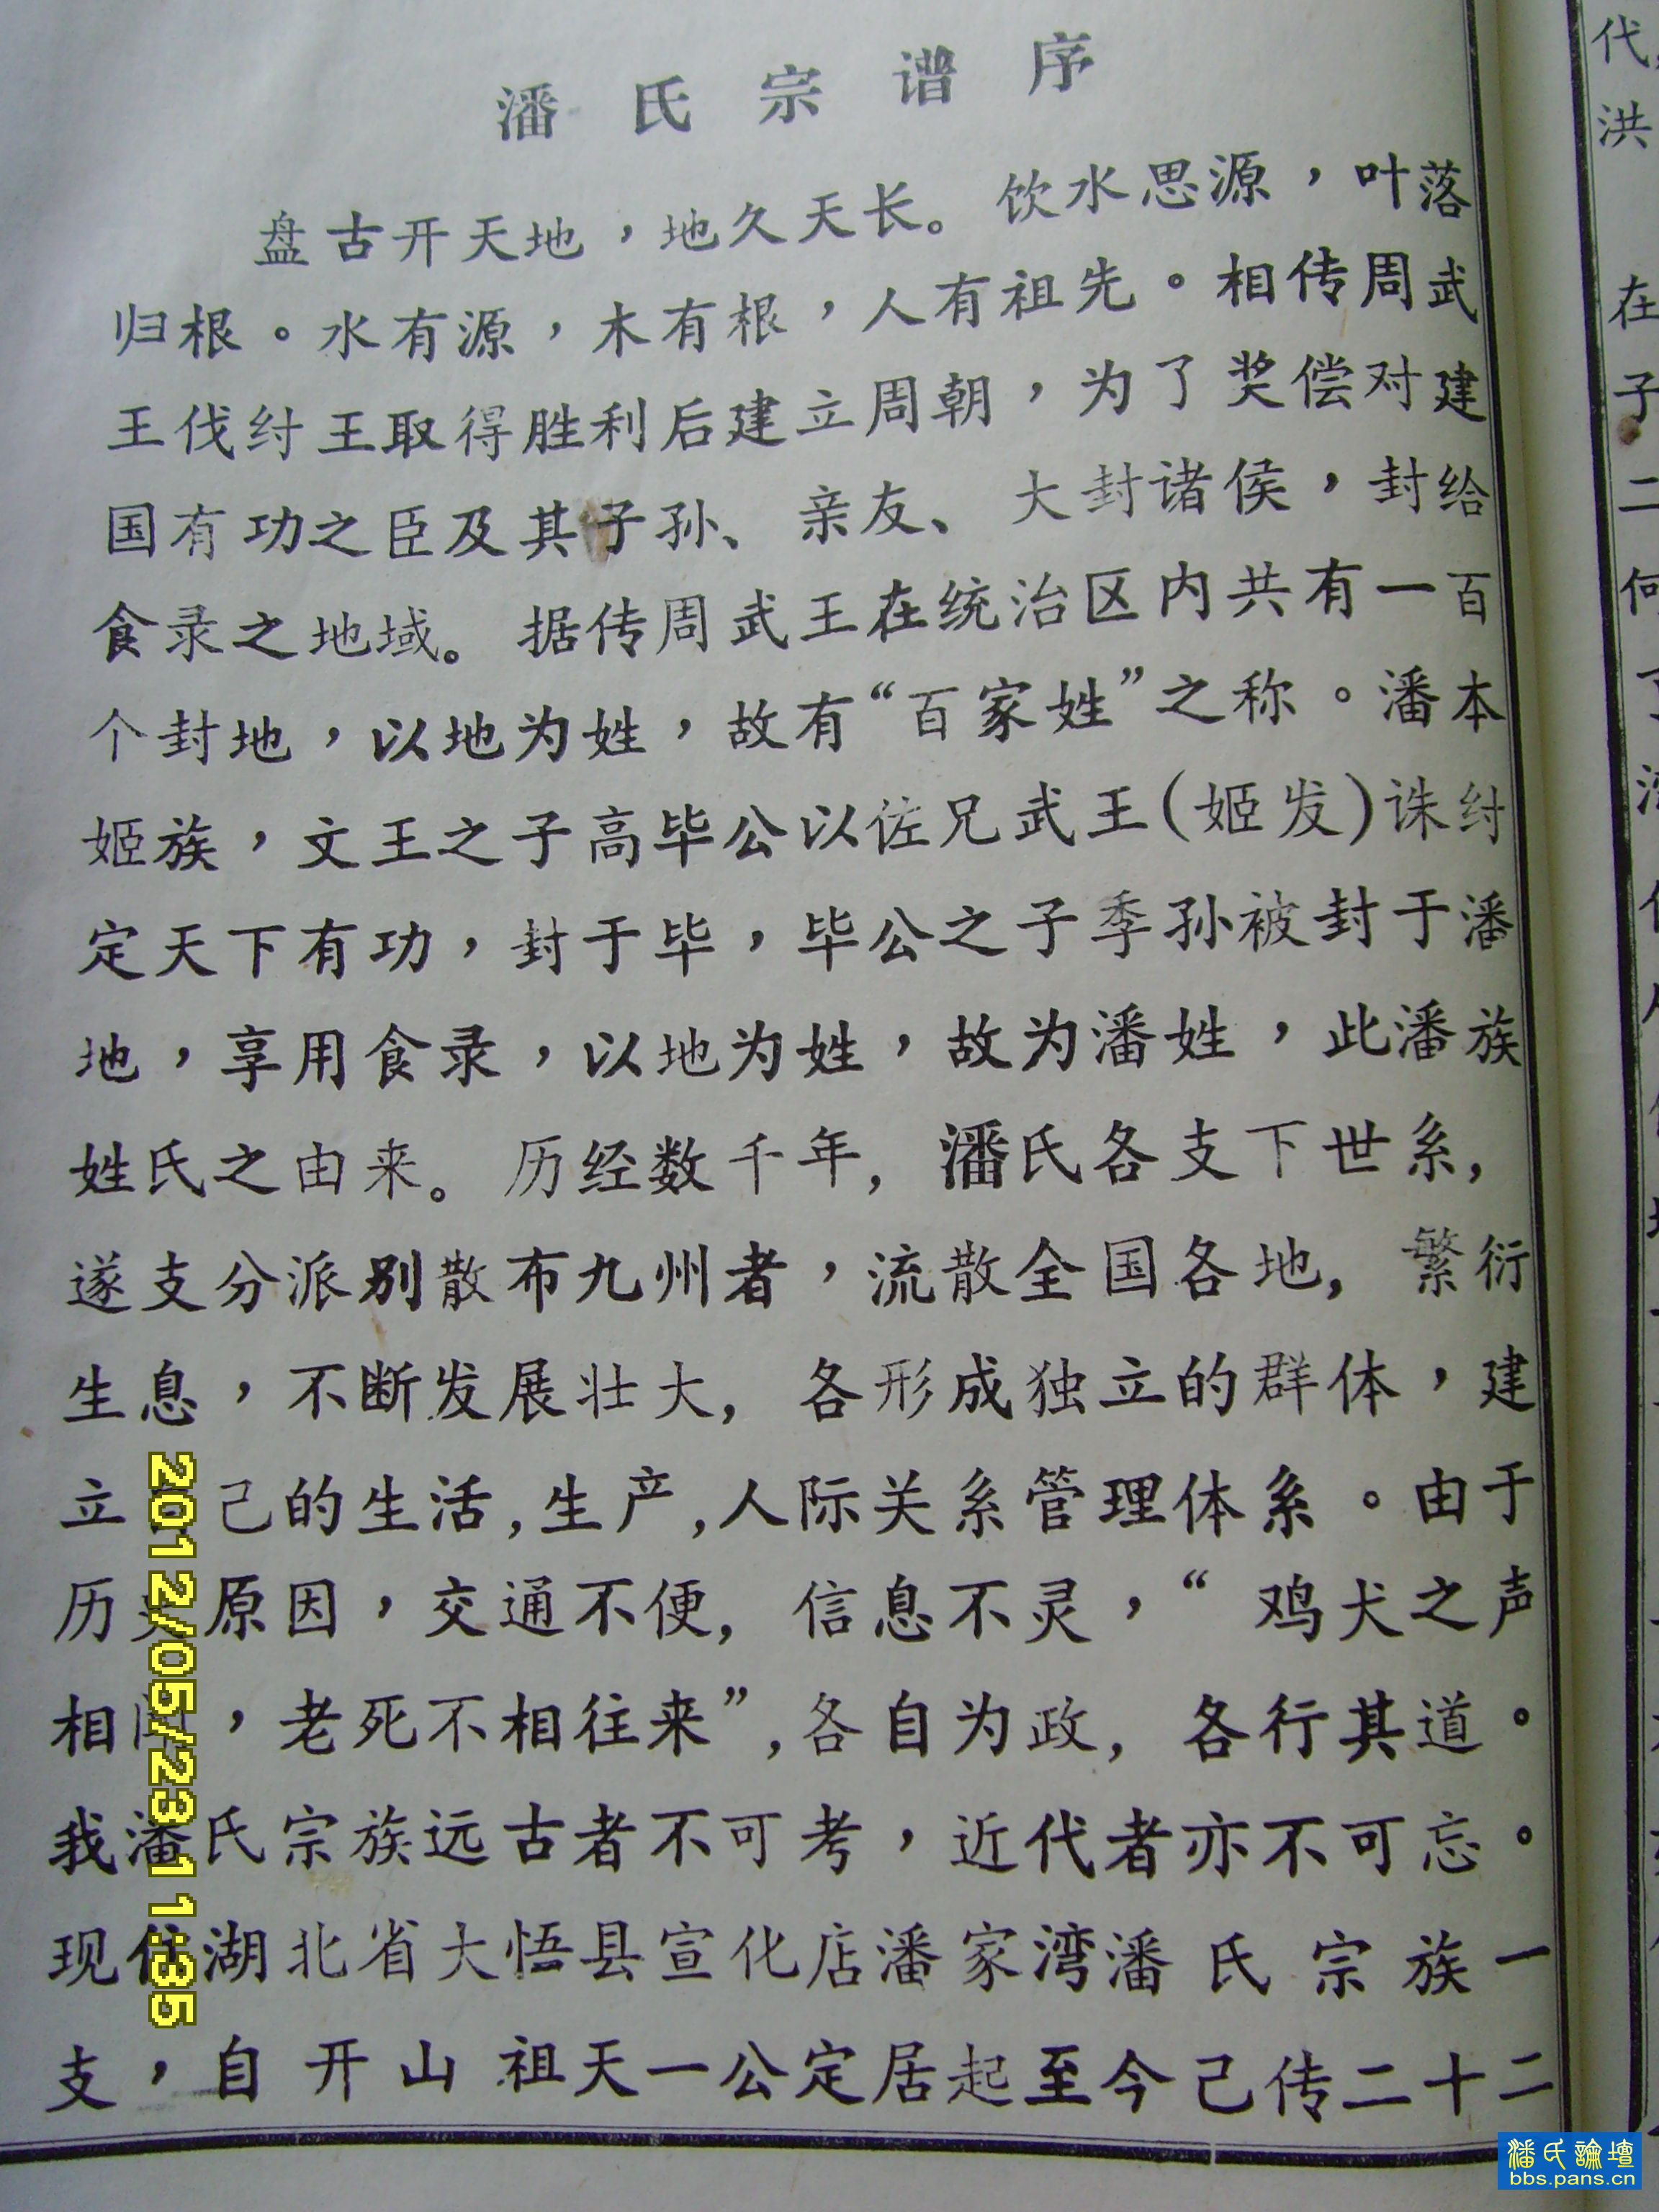 潘氏宗谱序
盘古开天地，地久天长。饮水思源，叶落
归根。水有源，木有根，人有祖先。相传周武
王伐纣王取得胜利后建立周朝，为了奖偿对建
国有功之臣及其子孙、亲友、大封诸侯，封给
食录之地域。据传周武王在统治区内共有一百
个封地，以地为姓，故有“百家姓”之称。潘本
姬族，文王之子高毕公以佐兄武王(姬发)诛纣
定天下有功，封于毕，毕公之子季孙被封于潘
地，享用食录，以地为姓，故为潘姓，此潘族
姓氏之由来。历经数千年，潘氏各支下世系，
遂支分派别散布九州者，流散全国各地，繁衍
生息，不断发展壮大，各形成独立的群体，建
立 己的生活，生产，人际关系管理体系。由于
历史原因，交通不便，信息不灵，“鸡犬之声
相 ，老死不相往来”，各自为政，各行其道。
我潘氏宗族远古者不可考，近代者亦不可忘。
现住湖北省大悟县宣化店潘家湾潘氏宗族一
支，自开山祖天一公定居起至今己传二十二
代，
洪
在
子
二
何
2012/05/23 11:35
潘氏論壇
bbs.pans.cn